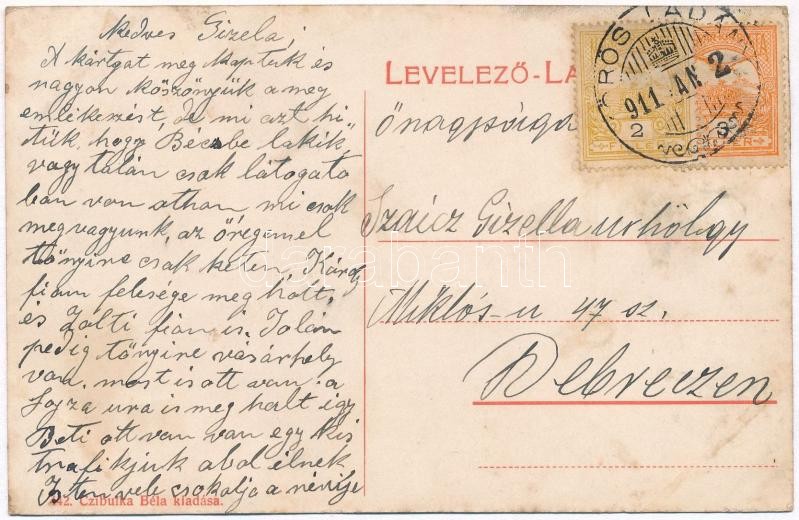 kedves Gizela!
A kártyat meg kaptuk és
nagyon köszönyük a meg
emlékezést, de mi azt hi-
tük, hogy Bécsbe lakik,
vagy talán csak látogato
ban van othan mi csak
meg vagyunk az öregimel
csak keten, Károly
fiam felesége meg holt,
és Zolti fiam is. Jolán
pedig vásárhely
van, most is ott van a
ura is meg halt igy
Beti ott van van egy kis
trafikjuk abol élnek
Isten vele csokolja a
LEVELEZŐ-LA
Önagysága
Szaicz Gizella urhölgy
Miklós-u 47 sz.
Debreczen
911 JAN 2
FILLÉR
2
3
darabanth
442. Czibulka Béla kiadása.